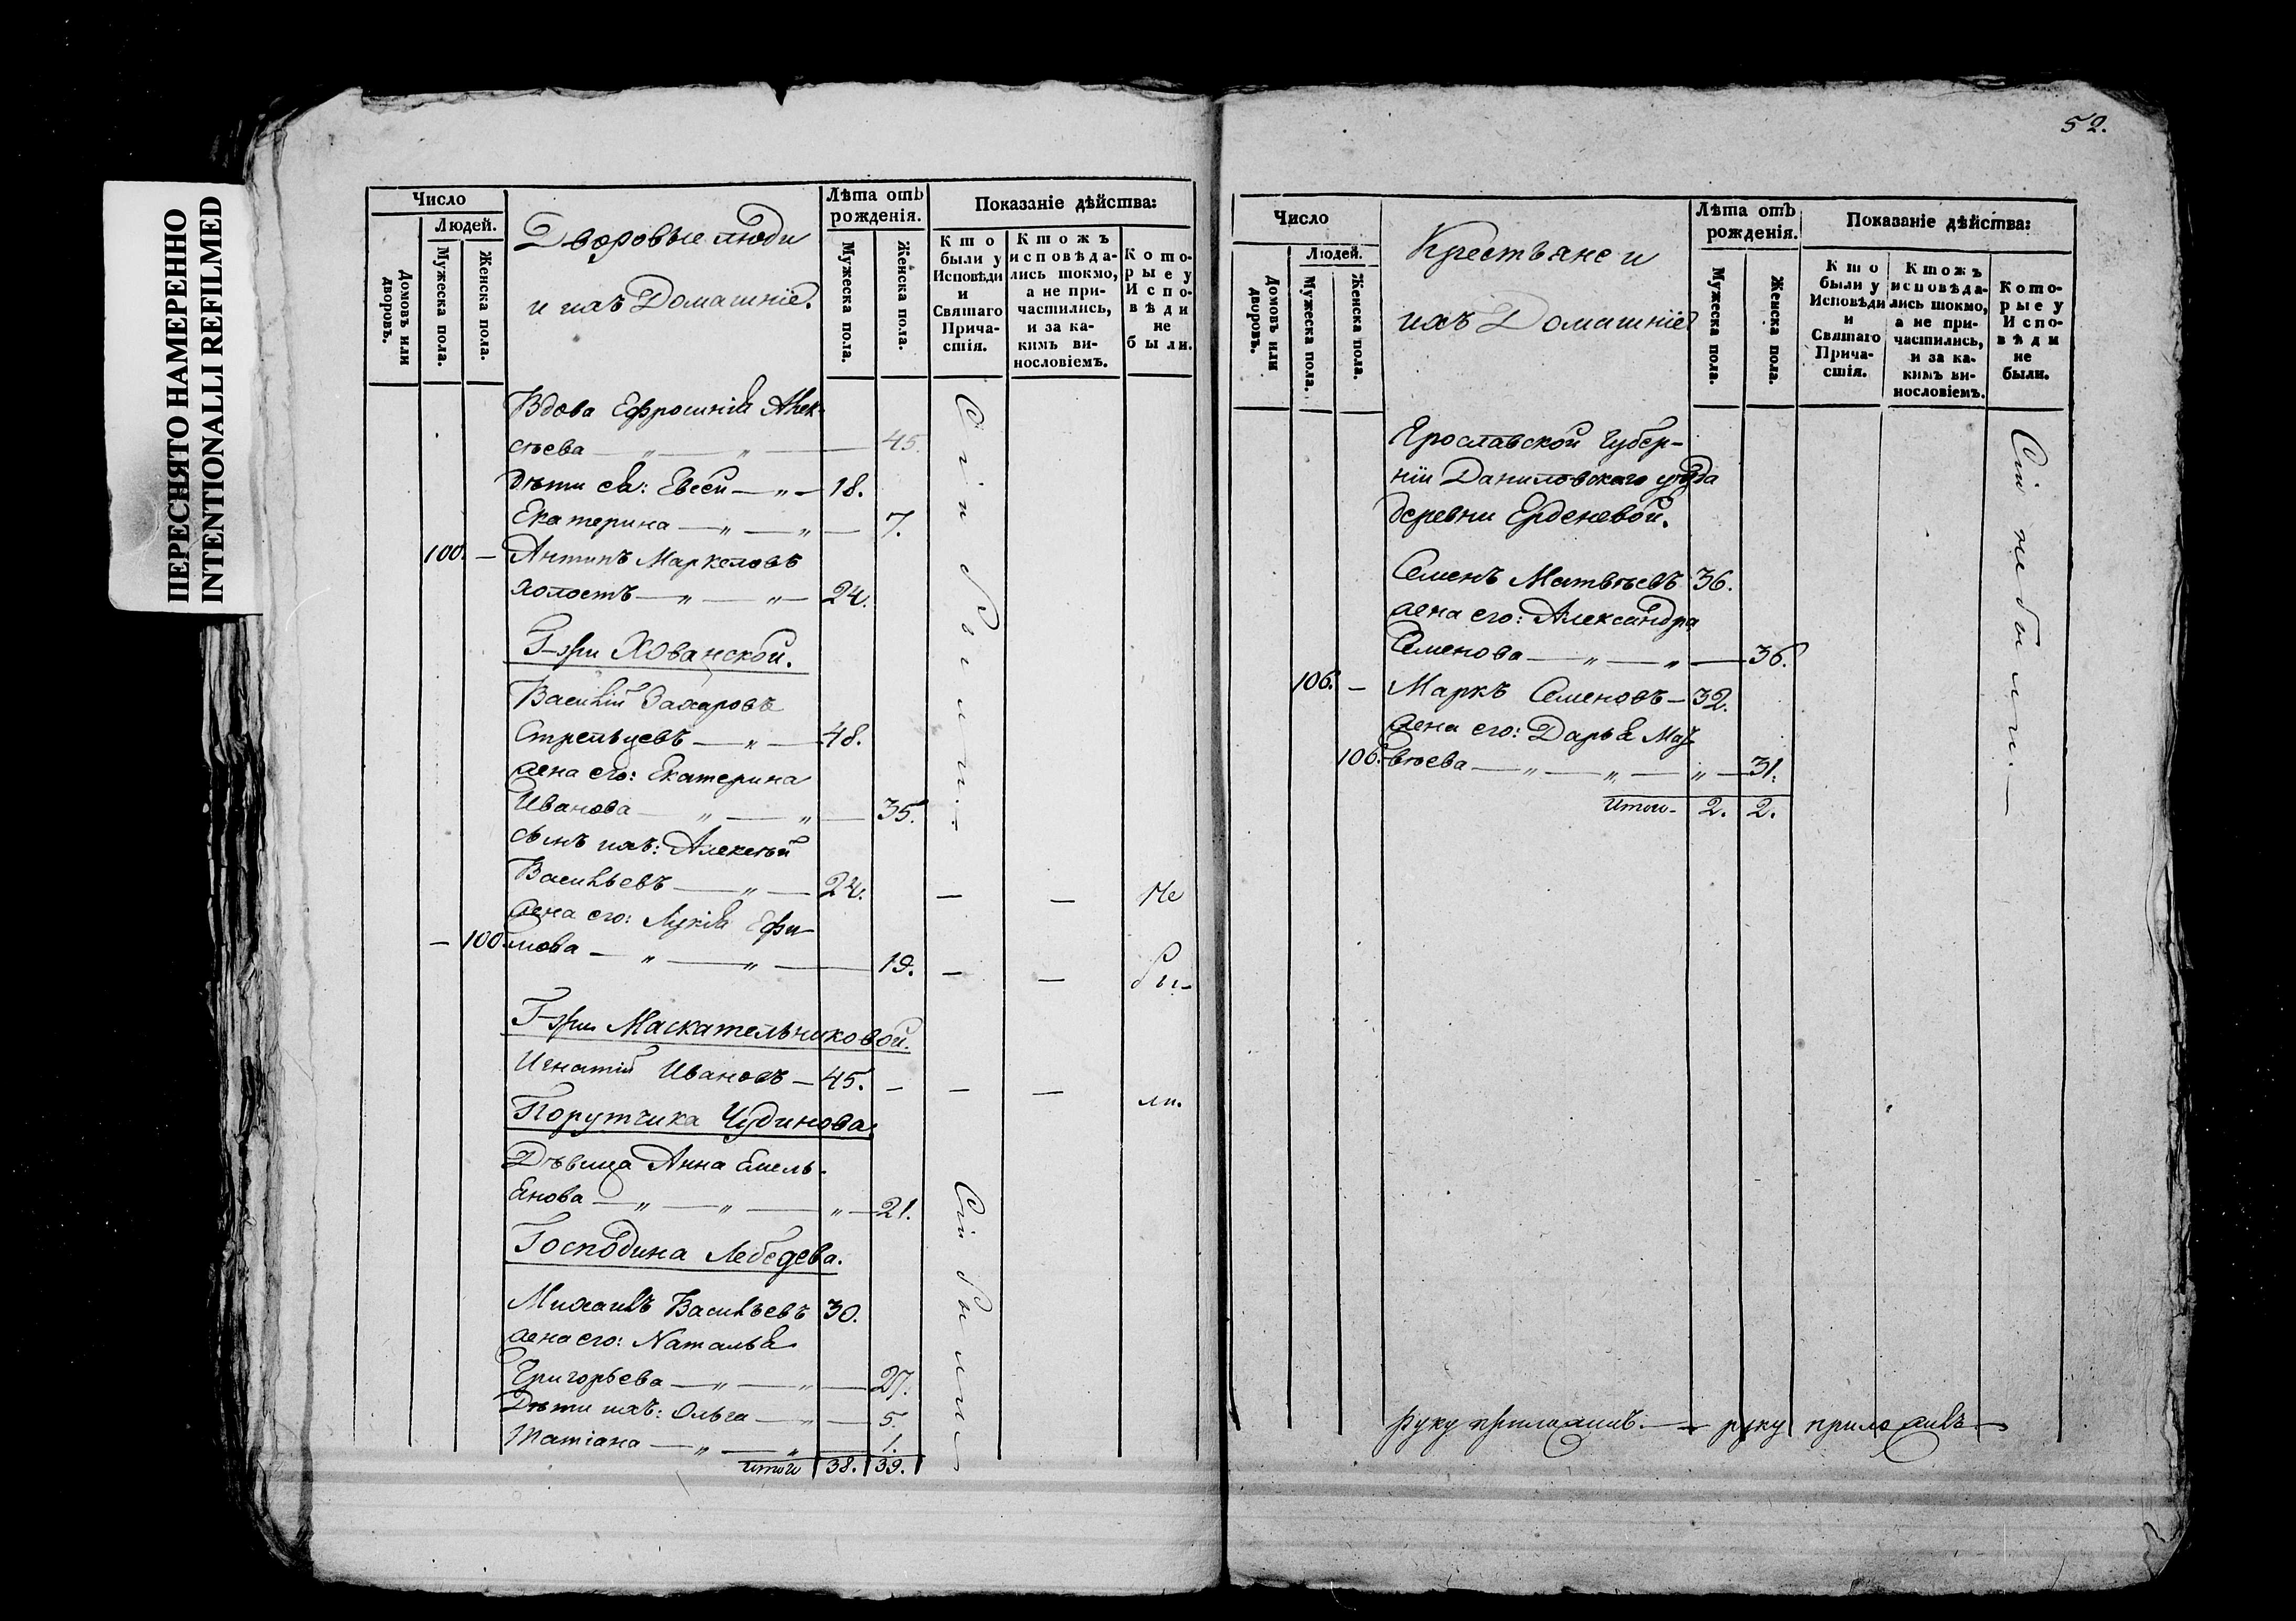 ПЕРЕСНЯТО НАМЕРЕННО
INTENTIONALLI REFILMED
Число
Людей.
Домовъ или дворовъ.
Мужеска пола.
Женска пола.
Дворовые люди
и ихъ Домашніе.
Лѣта отъ рожденія.
Мужеска пола.
Женска пола.
Показаніе дѣйства:
Кто были у Исповѣди и Святаго Причастія.
Ктожъ исповѣдались токмо, а не причастились, и за какимъ винословіемъ.
Которые у Исповѣди не были.
Вдова Ефросинія Алек-
сѣева — „ — „ — 45.
дѣти ея: Евсей — „ — 18.
Екатерина — „ — „ — 7.
100. — Антипъ Маркеловъ
холостъ — „ — „ — 24.
Сіи были. —
Г-жи Хованской.
Василій Захаровъ
Стрельцевъ — „ — 48.
жена его: Екатерина
Иванова — „ — „ — 35.
сынъ ихъ: Алексѣй
Васильевъ — „ — 24. — — Не
жена его: Лукія Ефи-
— 100. мова — „ — „ — 19. — — бы-
Г-жи Маскательниковой.
Игнатій Ивановъ — 45. — — — ли.
Порутчика Чудинова.
Дѣвица Анна Емель-
янова — „ — „ — „ — 21.
Господина Лебедева.
Михаилъ Васильевъ 30.
жена его: Наталья
Григорьева — „ — „ — 27.
Дѣти ихъ: Ольга — „ — 5.
Татіана — „ — „ — 1.
Сіи были —
итого 38. 39.
52.
Число
Людей.
Домовъ или дворовъ.
Мужеска пола.
Женска пола.
Крестьяне и
ихъ Домашніе
Лѣта отъ рожденія.
Мужеска пола.
Женска пола.
Показаніе дѣйства:
Кто были у Исповѣди и Святаго Причастія.
Ктожъ исповѣдались токмо, а не причастились, и за какимъ винословіемъ.
Которые у Исповѣди не были.
Ярославской Губер-
ніи Даниловскаго уѣзда
деревни Ерденевой.
Семенъ Матвѣевъ 36.
жена его: Александра
Семенова — „ — „ — 36.
106. — Маркъ Семеновъ — 32.
жена его: Дарья Мат-
106. вѣева — „ — „ — „ — 31.
итого — 2. 2.
Сіи не были. —
руку приложилъ. — руку приложилъ —